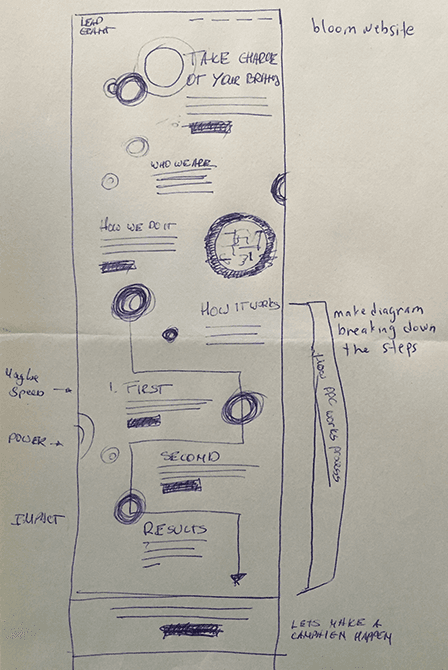 LEAD
GRANT
bloom website
TAKE CHARGE
OF YOUR BRAND
WHO WE ARE
HOW WE DO IT
HOW IT WORKS
make diagram
breaking down
the steps
HOW PPC WORKS PROCESS
Maybe
SPEED
1. FIRST
POWER
SECOND
IMPACT
RESULTS
LETS MAKE A
CAMPAIGN HAPPEN